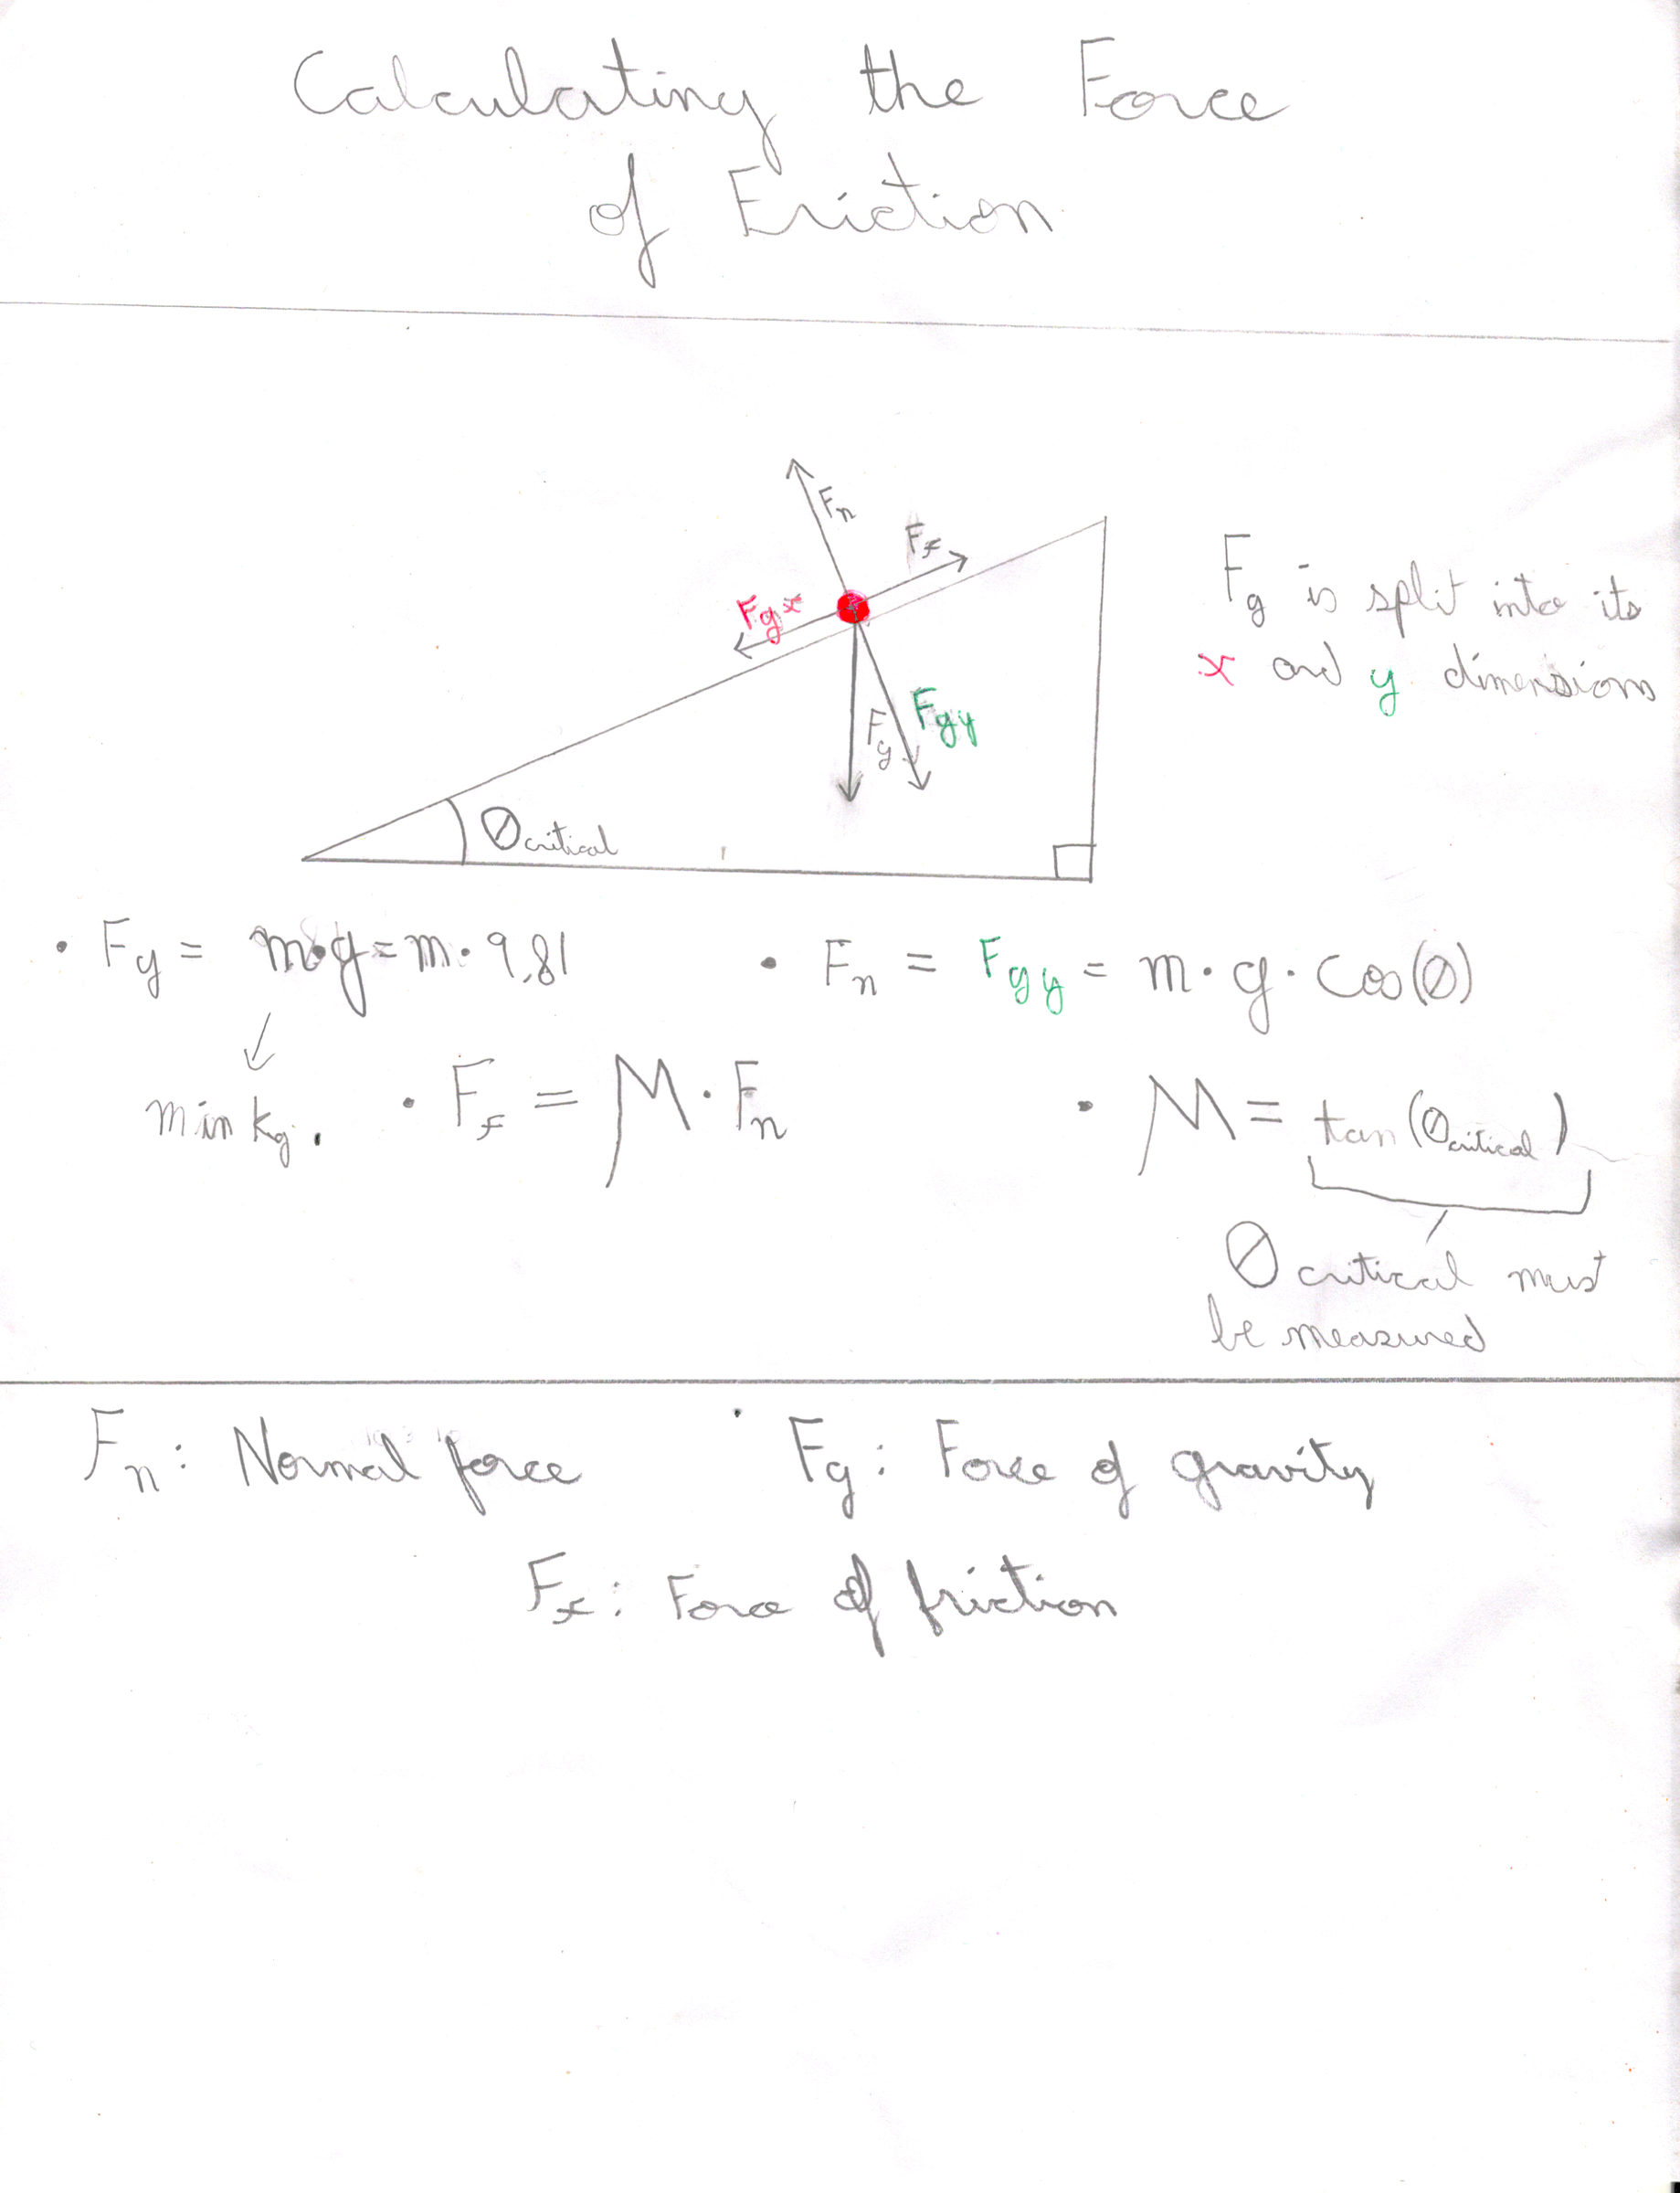 Calculating the Force
of Friction
Fn
Ff
Fgx
Fg
Fgy
Fg is split into its
x and y dimensions
θcritical
• Fg = m•g = m • 9.81
• Fn = Fgy = m • g • cos(θ)
m in kg.
• Ff = μ • Fn
• μ = tan(θcritical)
θcritical must
be measured
Fn: Normal force
Fg: Force of gravity
Ff: Force of friction